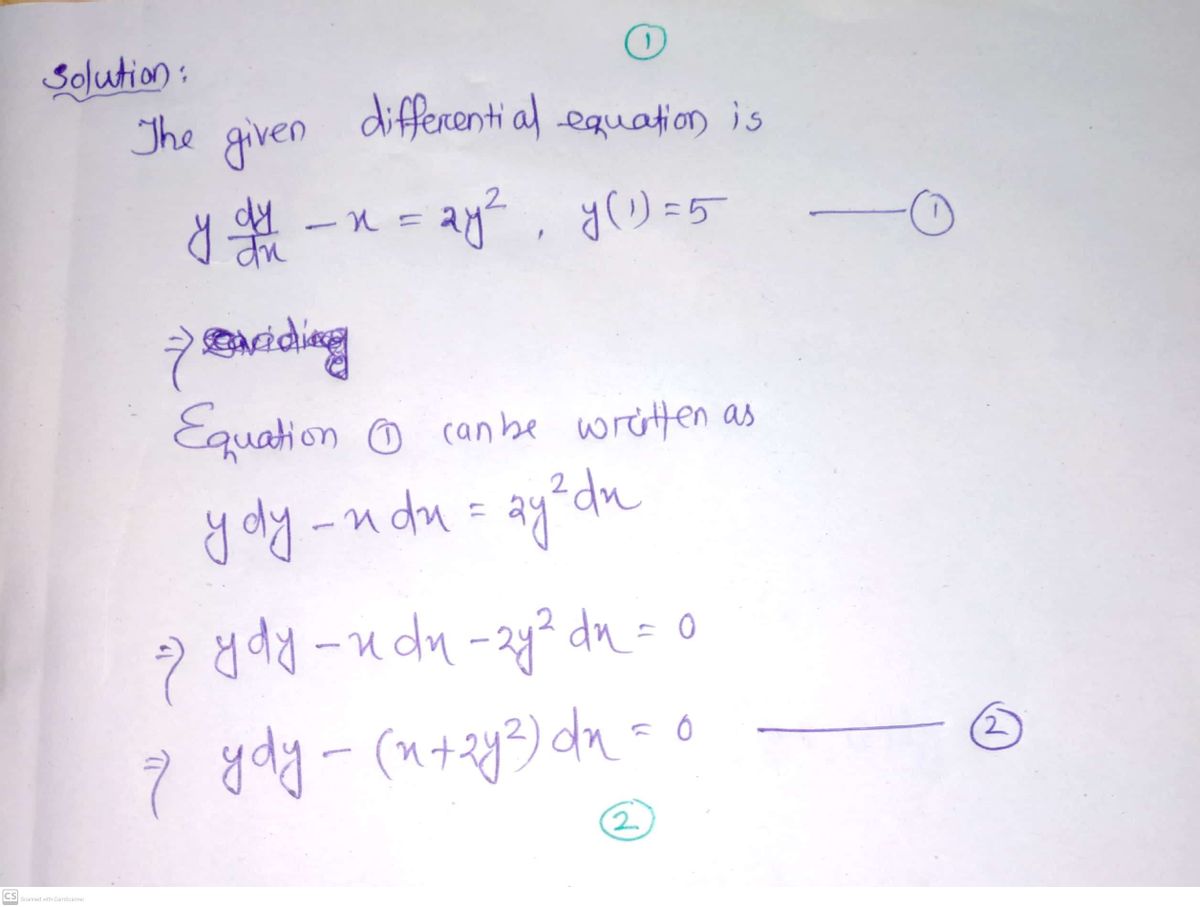 ①
Solution:
The given differential equation is
y dy/dx - x = 2y², y(1) = 5 —— ①
⇒
Equation ① can be written as
y dy - x dx = 2y² dx
⇒ y dy - x dx - 2y² dx = 0
⇒ y dy - (x + 2y²) dx = 0 —— ②
②
CS Scanned with CamScanner